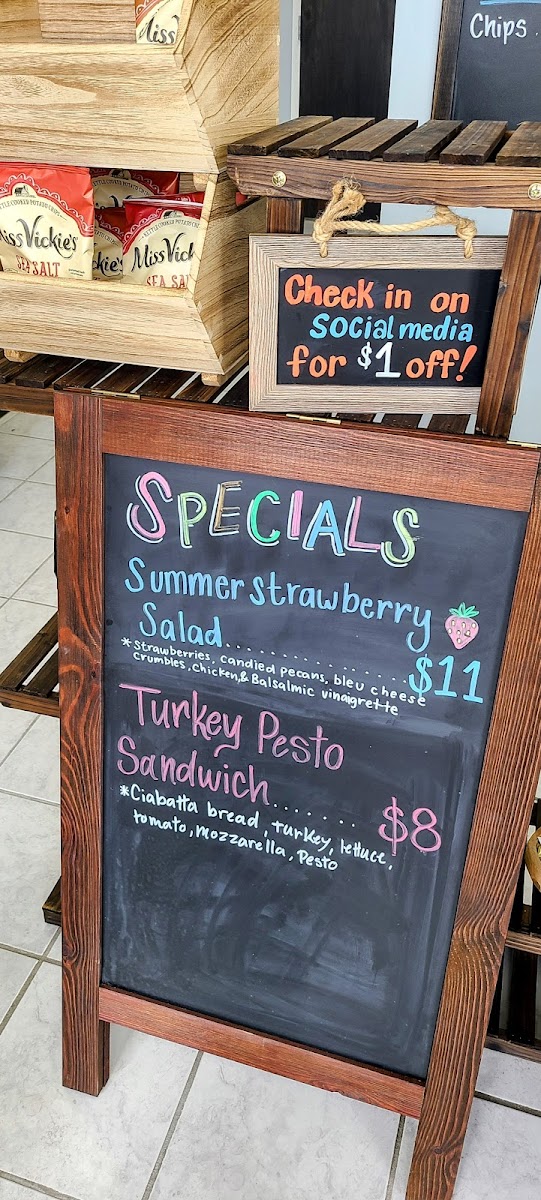 Miss
KETTLE COOKED POTATO CHIPS
Miss Vickie's
SEA SALT
kie's
Miss Vick
SEA SA
Chips
Check in on
social media
for $1 off!
SPECIALS
Summer strawberry
Salad................$11
*Strawberries, candied pecans, bleu cheese
crumbles, chicken, & Balsalmic vinaigrette
Turkey Pesto
Sandwich....... $8
*Ciabatta bread, turkey, lettuce,
tomato, mozzarella, Pesto